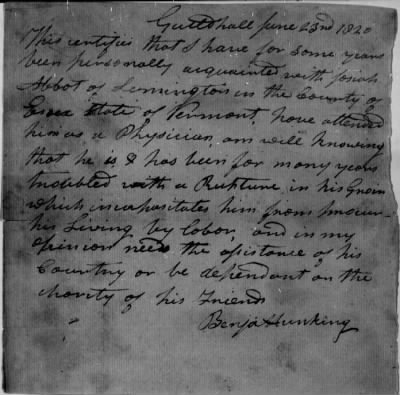 Guildhall June 23nd 1820
This certifies that I have for some years
been personally acquainted with Josiah
Abbot of Lemington in the County of
Essex State of Vermont, have attended
him as a Physician, am well knowing
that he is & has been for many years
troubled with a Rupture in his Groin
which incapasitates him from procur-
his Living by labor, and in my
opinion needs the assistance of his
Country or be dependant on the
charity of his Friends
Benja Hunking